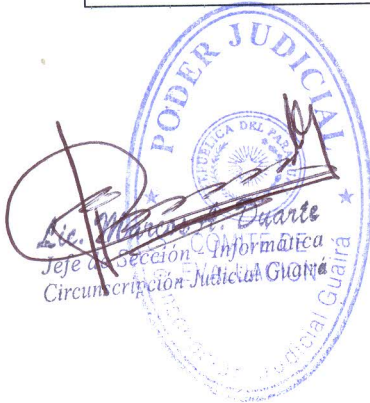 PODER JUDICIAL
REPUBLICA DEL PARAGUAY
Lic. Marcos A. Duarte
Jefe de Sección - Informática
Circunscripción Judicial Guairá
COMITE DE
EVALUACION
Judicial Guairá